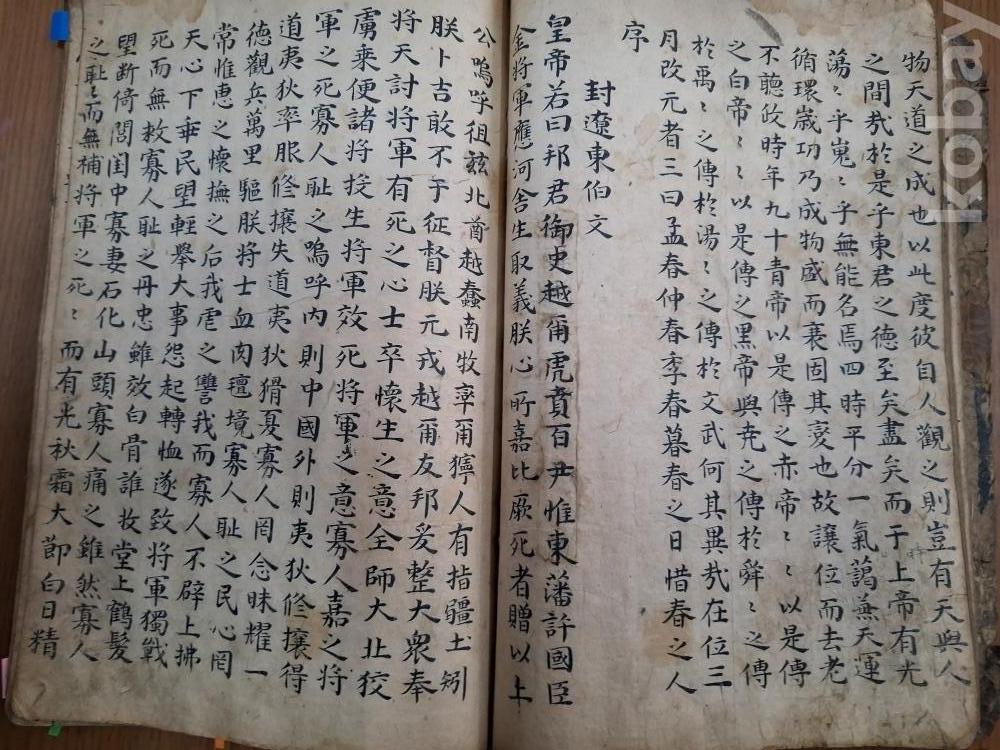 物天道之成也以此度彼自人觀之則豈有天與人
之間㢤於是乎東君之德至矣盡矣而于上帝有光
蕩〻乎嵬〻乎無能名焉四時平分一氣藹無天運
循環歲功乃成物盛而衰固其変也故讓位而去老
不聽政時年九十青帝以是傳之赤帝〻〻以是傳
之白帝〻〻以是傳之黑帝與尭之傳於舜〻之傳
於禹〻之傳於湯〻之傳於文武何其異㢤在位三
月改元者三曰孟春仲春季春暮春之日惜春之人
序
封遼東伯文
皇帝若曰邦君御史越甭虎賁百尹惟東藩許國臣
金將軍應河舍生取義朕心所嘉比厥死者贈以上
公嗚呼徂玆北酋越蠢南牧率甭獰人有指疆土矧
朕卜吉敢不于征督朕元戎越甭友邦爰整大衆奉
將天討將軍有死之心士卒懷生之意全師大北狡
虜乘便諸將投生將軍效死將軍之意寡人嘉之將
軍之死寡人耻之嗚呼內則中國外則夷狄修攘得
道夷狄率服修攘失道夷狄猾夏寡人罔念昧耀一
德觀兵萬里驅朕將士血肉䄠境寡人耻之民心罔
常惟恵之懷撫之后我虐之讐我而寡人不辟上拂
天心下乖民望輕舉大事怨起轉恤遂致將軍獨戰
死而無救寡人耻之丹忠雖效白骨誰收堂上鶴髮
望断倚閭閨中寡妻石化山頭寡人痛之雖然寡人
之耻〻而無補將軍之死〻而有光秋霜大節白日精
kobay